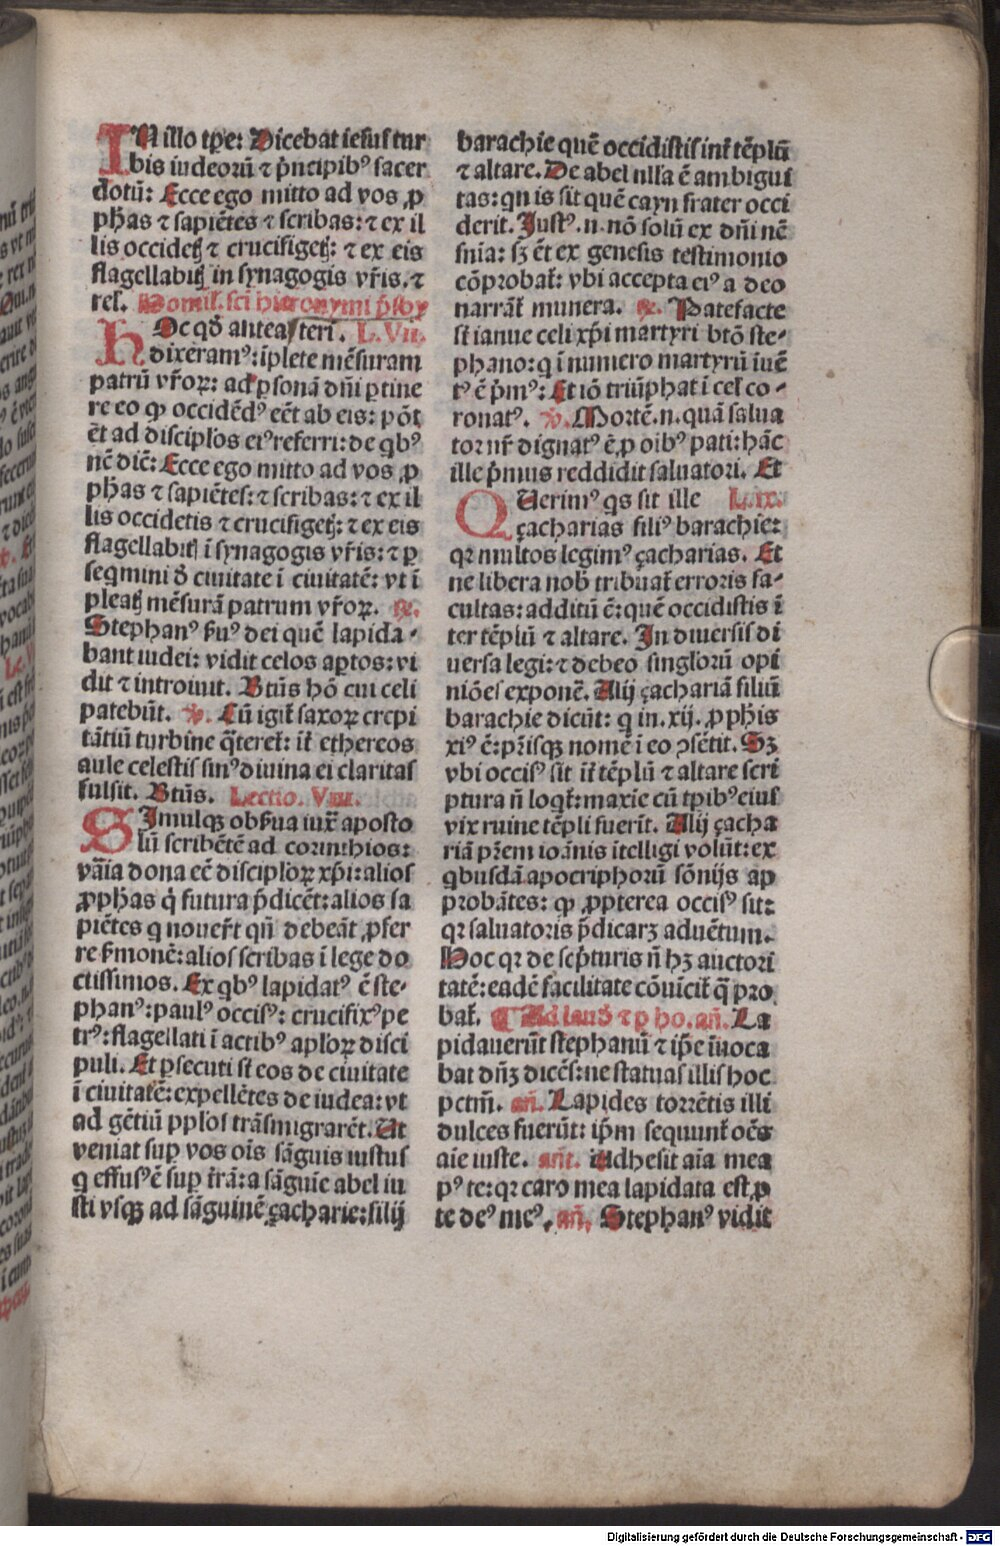 IN illo tp̄e: Dicebat iesus tur
bis iudeoꝝ ⁊ p̄ncipibꝰ sacer
dotū: Ecce ego mitto ad vos ꝓ
pħas ⁊ sapiētes ⁊ scribas: ⁊ ex il
lis occidetꝭ ⁊ crucifigetꝭ: ⁊ ex eis
flagellabitꝭ in synagogis vr̄is. ⁊
rel. Homil. sci hieronymi p̄sby
Hoc qd̄ antea teri. L. Vii.
dixeramꝰ: īplete mēsuram
patrū vr̄oꝝ: ad ꝑsonā dn̄i ꝑtine
re eo ꝙ occidēdꝰ eēt ab eis: pōt
ēt ad discipl̄os eiꝰ referri: de qbꝰ
nē diē: Ecce ego mitto ad vos ꝓ
pħas ⁊ sapiētes: ⁊ scribas: ⁊ ex il
lis occidetis ⁊ crucifigetꝭ: ⁊ ex eis
flagellabitꝭ ī synagogis vr̄is: ⁊ ꝑ
seqmini d̄ ciuitate ī ciuitatē: vt ī
pleatꝭ mēsurā patrum vr̄oꝝ. ℟.
Stephanꝰ ẜuꝰ dei quē lapida-
bant iudei: vidit celos aꝑtos: vi
dit ⁊ introiuit. Btūs hō cui celi
patebūt. ℣. Cū igit̄ saxoꝝ crepi
tātiū turbine q̄teret̄: īt̄ ethereos
aule celestis sinꝰ diuina ei claritas
fulsit. Btūs. Lectio. Viii.
Simulqꝫ obẜua iux̄ aposto
lū scribētē ad corinthios:
vāia dona eē discipl̄oꝝ xp̄i: alios
ꝓpħas q̇ futura p̄dicēt: alios sa
piētes q nouer̄t qn̄ debeāt ꝓfer
re ẜmonē: alios scribas ī lege do
ctissimos. Ex qbꝰ lapidatꝰ ē ste-
phanꝰ: paulꝰ occisꝰ: crucifixꝰ pe
trꝰ: flagellati ī actibꝰ apl̄oꝝ disci
puli. Et ꝑsecuti st̄ eos de ciuitate
ī ciuitatē: expellētes de iudea: vt
ad gētiū ppl̄os trāsmigrarēt. Ut
veniat suꝑ vos oīs sāguis iustus
q effusꝰ ē suꝑ t̄rā: a sāguie abel iu
sti vsqꝫ ad sāguinē çacharie: filij
barachie quē occidistis int̄ tēplū
⁊ altare. De abel nll̄a ē ambigui
tas: qn is sit quē cayn frater occi
derit. Justꝰ .n. nō solū ex dn̄i nē
sn̄ia: sꝫ ēt ex genesis testimonio
cōprobat̄: vbi accepta eiꝰ a deo
narrāt̄ munera. ℟. Patefacte
st̄ ianue celi xp̄i martyri btō ste-
phano: q ī numero martyrū īuē
tꝰ ē p̄mꝰ: Et iō triūphat ī cel co-
ronatꝰ. ℣. Mortē .n. quā salua
tor nr̄ dignatꝰ ē ꝓ oibꝰ pati: hāc
ille p̄mus reddidit saluatori. Et
Querimꝰ qs sit ille L. ix.
çacharias filiꝰ barachie:
qꝛ multos legimꝰ çacharias. Et
ne libera nob̄ tribuat̄ erroris fa-
cultas: additū ē: quē occidistis ī
ter tēplū ⁊ altare. In diuersis di
uersa legi: ⁊ debeo singl̄oꝝ opi
niōes exponē. Alij çachariā filiū
barachie dicūt: q in .xij. ꝓphis
xiꝰ ē: pr̄isqꝫ nomē ī eo ↄsētit. Sꝫ
vbi occisꝰ sit īt̄ tēplū ⁊ altare scri
ptura n̄ loqt̄: maxie cū tp̄ibꝰ eius
vix ruine tēpli fuerīt. Alij çacha
riā pr̄em ioānis ītelligi volūt: ex
qbusdā apocriphoꝝ sōnijs ap
probātes: ꝙ ꝓpterea occisꝰ sit:
qꝛ saluatoris p̄dicarꝫ aduētum.
Hoc qꝛ de sc̄pturis n̄ hꝫ auctori
tatē: eadē facilitate cōuīcit̄ q̄ pro
bat̄. ¶ Ad laud̄ ⁊ ꝑ ho. an̄. La
pidauerūt stephanū ⁊ ip̄e īuoca
bat dn̄ꝫ dicēs: ne statuas illis hoc
pctm̄. an̄. Lapides torrētis illi
dulces fuerūt: ip̄m sequunt̄ oēs
aie iuste. an̄t. Adhesit aīa mea
pꝰ te: qꝛ caro mea lapidata est ꝓ
te deꝰ meꝰ. an̄. Stephanꝰ vidit
Digitalisierung gefördert durch die Deutsche Forschungsgemeinschaft - DFG